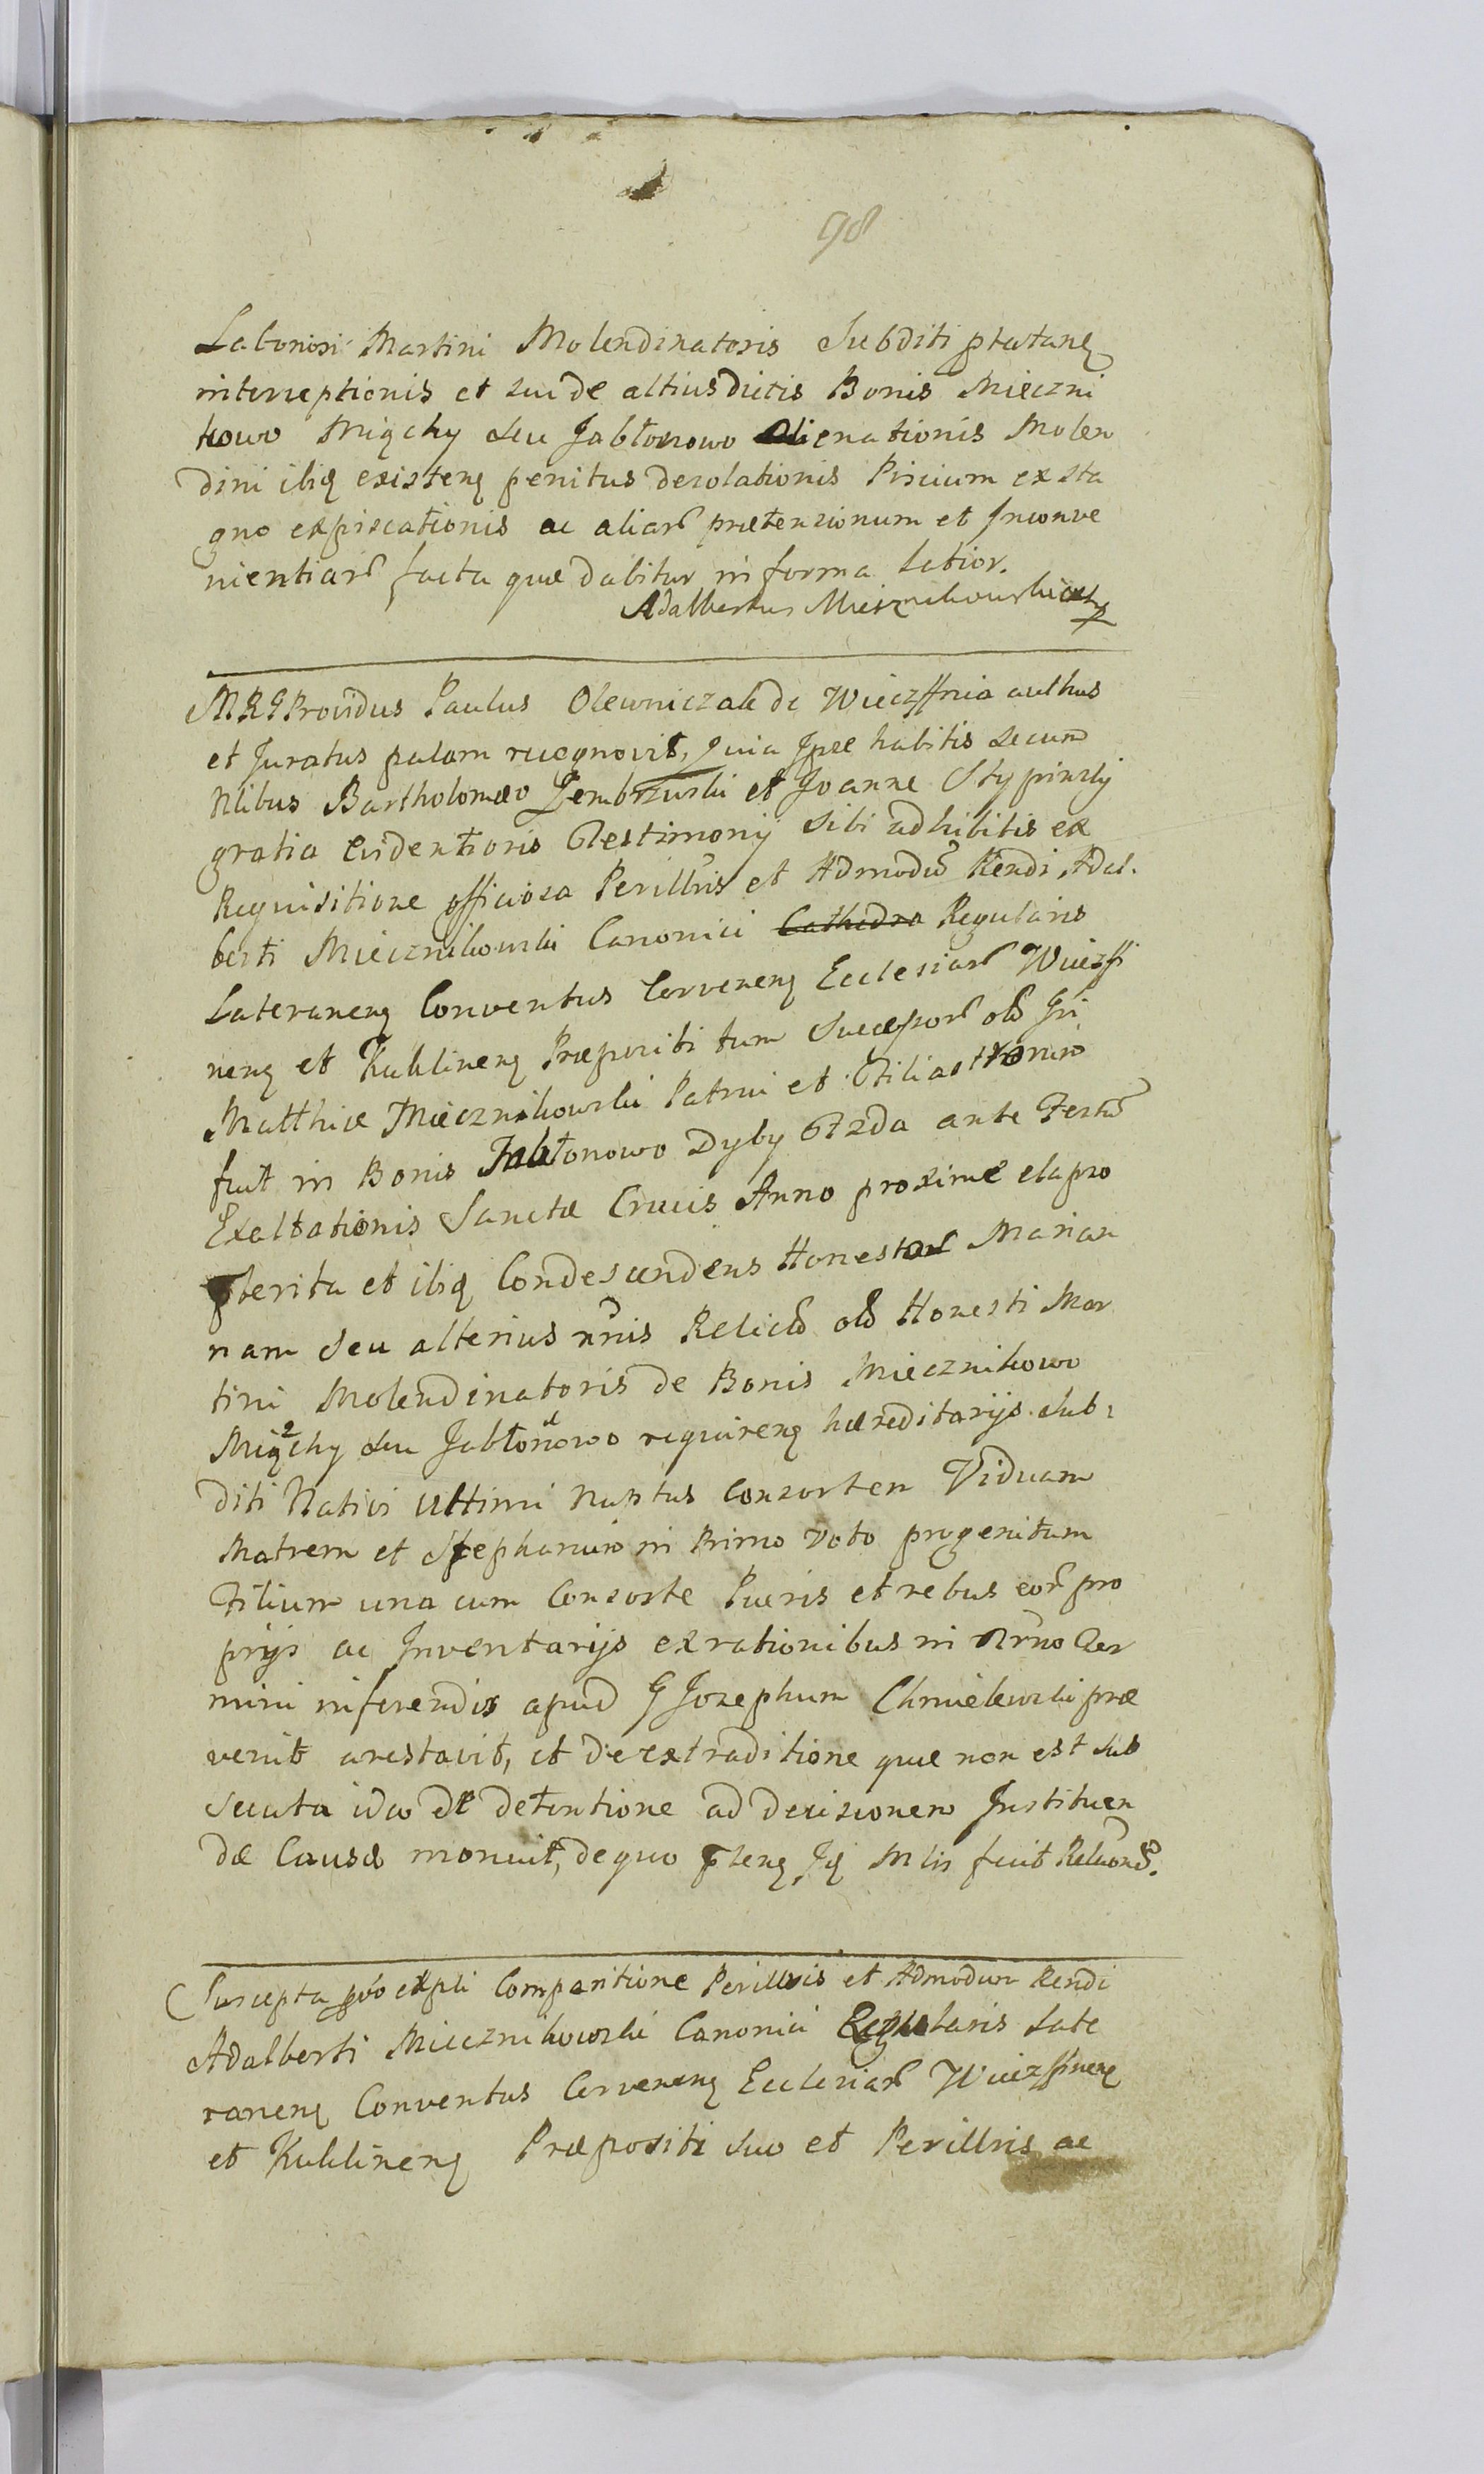 98
Laboriosi Martini Molendinatoris Subditi ptactaneq
interceptionis et sui de altius dictis Bonis Mieczni
kowo Miączky seu Jabłonowo alienationis Molen
dini ibiq existenq penitus desolationis Piscium ex sta
gno expiscationis ac aliar prætensionum et Inconve
nientiar facta quæ dabitur in forma latior.
Adalbertus Miecznikowski
MRG Providus Paulus Olewniczak de Wieczffnia authus
et Juratus palam recognovit, Quia Ipse habitis secum
Nlibus Bartholomæo Zembrzuski et Joanne Stypinski
gratia Evidentioris Testimonij sibi adhibitis ex
Requisitione officiosa Perillris et Admodu Rendi Adal.
berti Miecznikowski Canonici Cathedra Regularis
Lateranenq Conventus Cervenenq Ecclesiar Wiezffi
nenq et Kuklinenq Præpositi tum Successor old Gsi
Matthiæ Miecznikowski Patrui et Filiastrorum
fuit in Bonis Jabłonowo Dyby 6t 2da ante Festu
Exaltationis Sanctæ Crucis Anno proxime elapso
pterita et ibiq Condescendens Honestam Marian
nam seu alterius nnis Relicta old Honesti Mar
tini Molendinatoris de Bonis Miecznikowo
Miączky seu Jabłonowo requirenq hæreditarijs Sub:
diti Nativi ultimi nuptus consortem Viduam
Matrem et Stephanum in Primo voto progenitum
Filium una cum Consorte Pueris et rebus eor pro
prijs ac Inventarijs ex rationibus in Trno Ter
mini inferendis apud G Josephum Chmielewski præ
venit arestavit, et de extraditione quæ non est sub
secuta ideo de detentione ad decisionem Instituen
dæ Causæ monuit, de quo ptenq Jq Mlis fuit Relaonē.
Suscepta pro expli Comparitione Perillris et Admodum Rendi
Adalberti Miecznikowski Canonici Regularis Late
ranenq Conventus Cervenenq Ecclesiar Wiezffnenq
et Kuklinenq Præpositi suo et Perillris ac